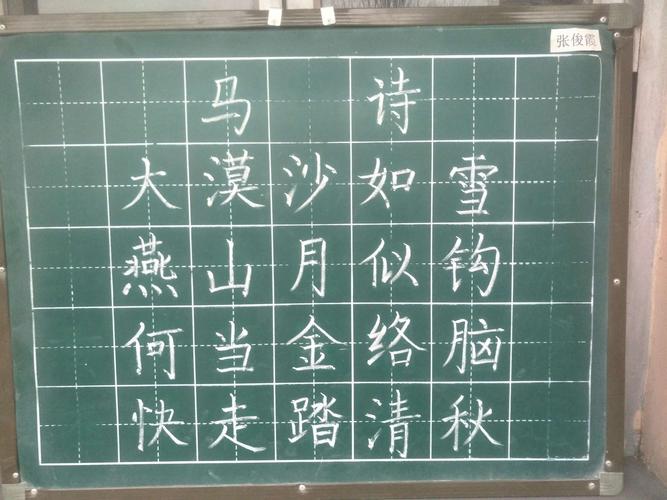 张俊霞
马诗
大漠沙如雪
燕山月似钩
何当金络脑
快走踏清秋